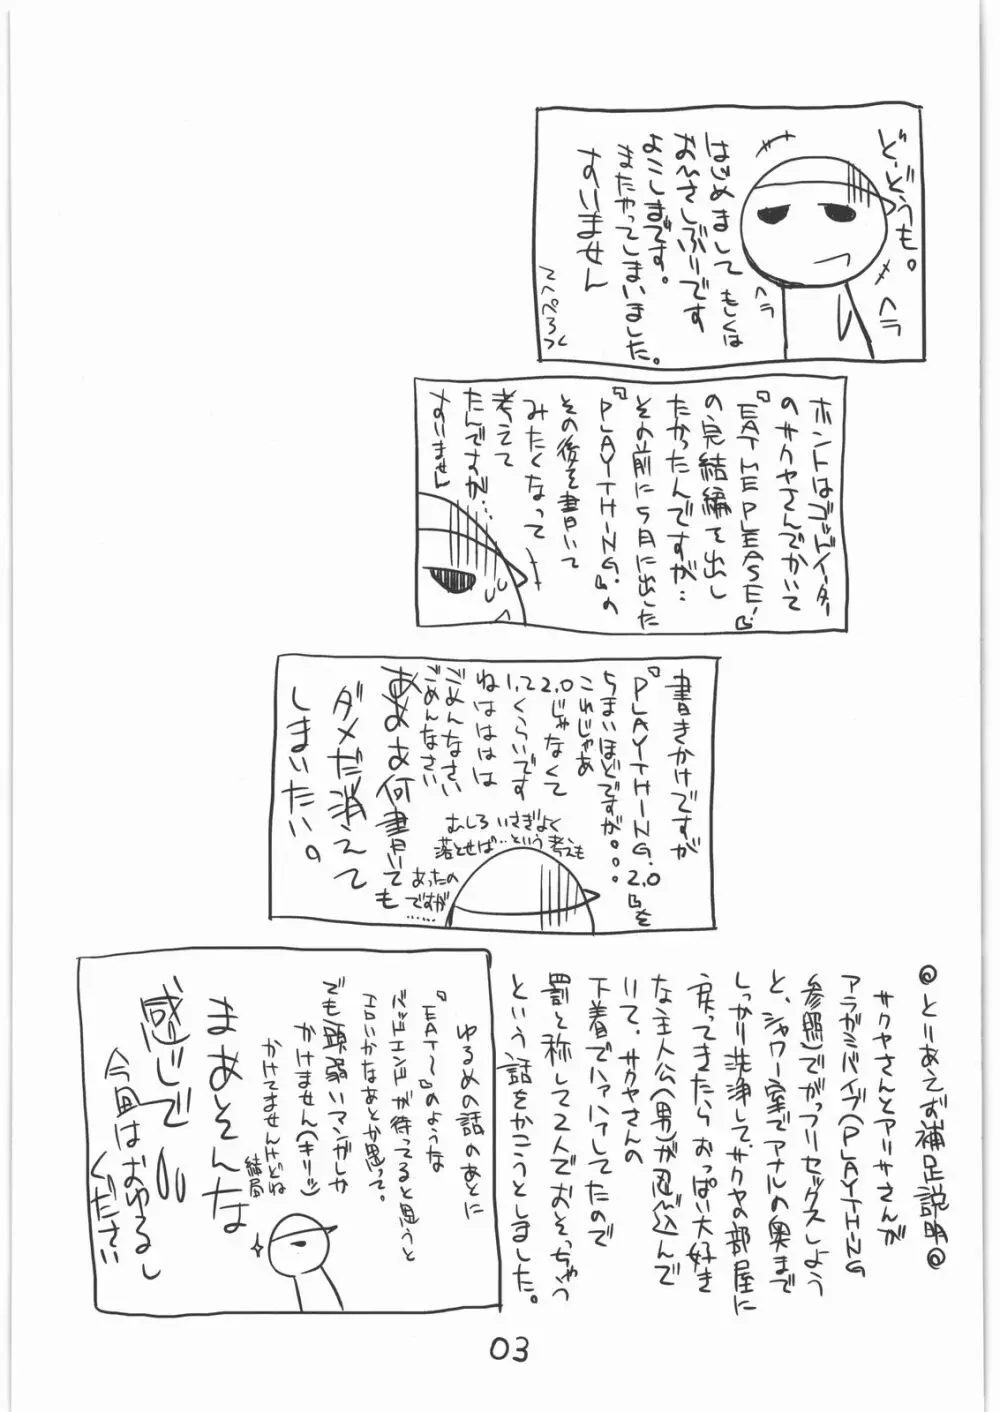 ど、どうも。
ヘラ
ヘラ
はじめまして もしくは
おひさしぶりです
よこしまです。
またやってしまいました。
すいません
てへぺろっ
ホントはゴッドイーター
のサクヤさんでかいて
『EAT ME PLEASE!』
の完結編を出し
たかったんですが…
その前に5月に出した
『PLAYTHING.』の
その後を書いて
みたくなって
考えて
たんですが…
すいません
書きかけですが
『PLAYTHING.2.0』を
うまいほどですが。。。
これじゃあ
2.0じゃなくて
1.てくらいです
ねはははは
ごめんなさい
ごめんなさい
ああお何書いても
ダメだ消えて
しまいたい。
むしろ いさぎよく
落とせば…という考えも
あったの
ですが
……
◎とりあえず補足説明◎
サクヤさんとアリサさんが
アラガミバイブ(PLAYTHING
参照)でがっフリセックスしよう
と、シャワー室でアナルの奥まで
しっかり洗浄して、サクヤの部屋に
戻ってきたら おっぱい大好き
な主人公(男)が忍び込んで
いて、サクヤさんの
下着でハァハァしてたので
罰と称して2人でおそっちゃう
という話をかこうとしました。
ゆるめの話のあとに
『EAT〜』のような
バッドエンドが待ってると思うと
エロいかなあとか思って。
でも頭弱いマンガしか
かけません(キリッ)
かけてませんけどね
結局
まあそんな
感じで
今回はおゆるし
ください
03